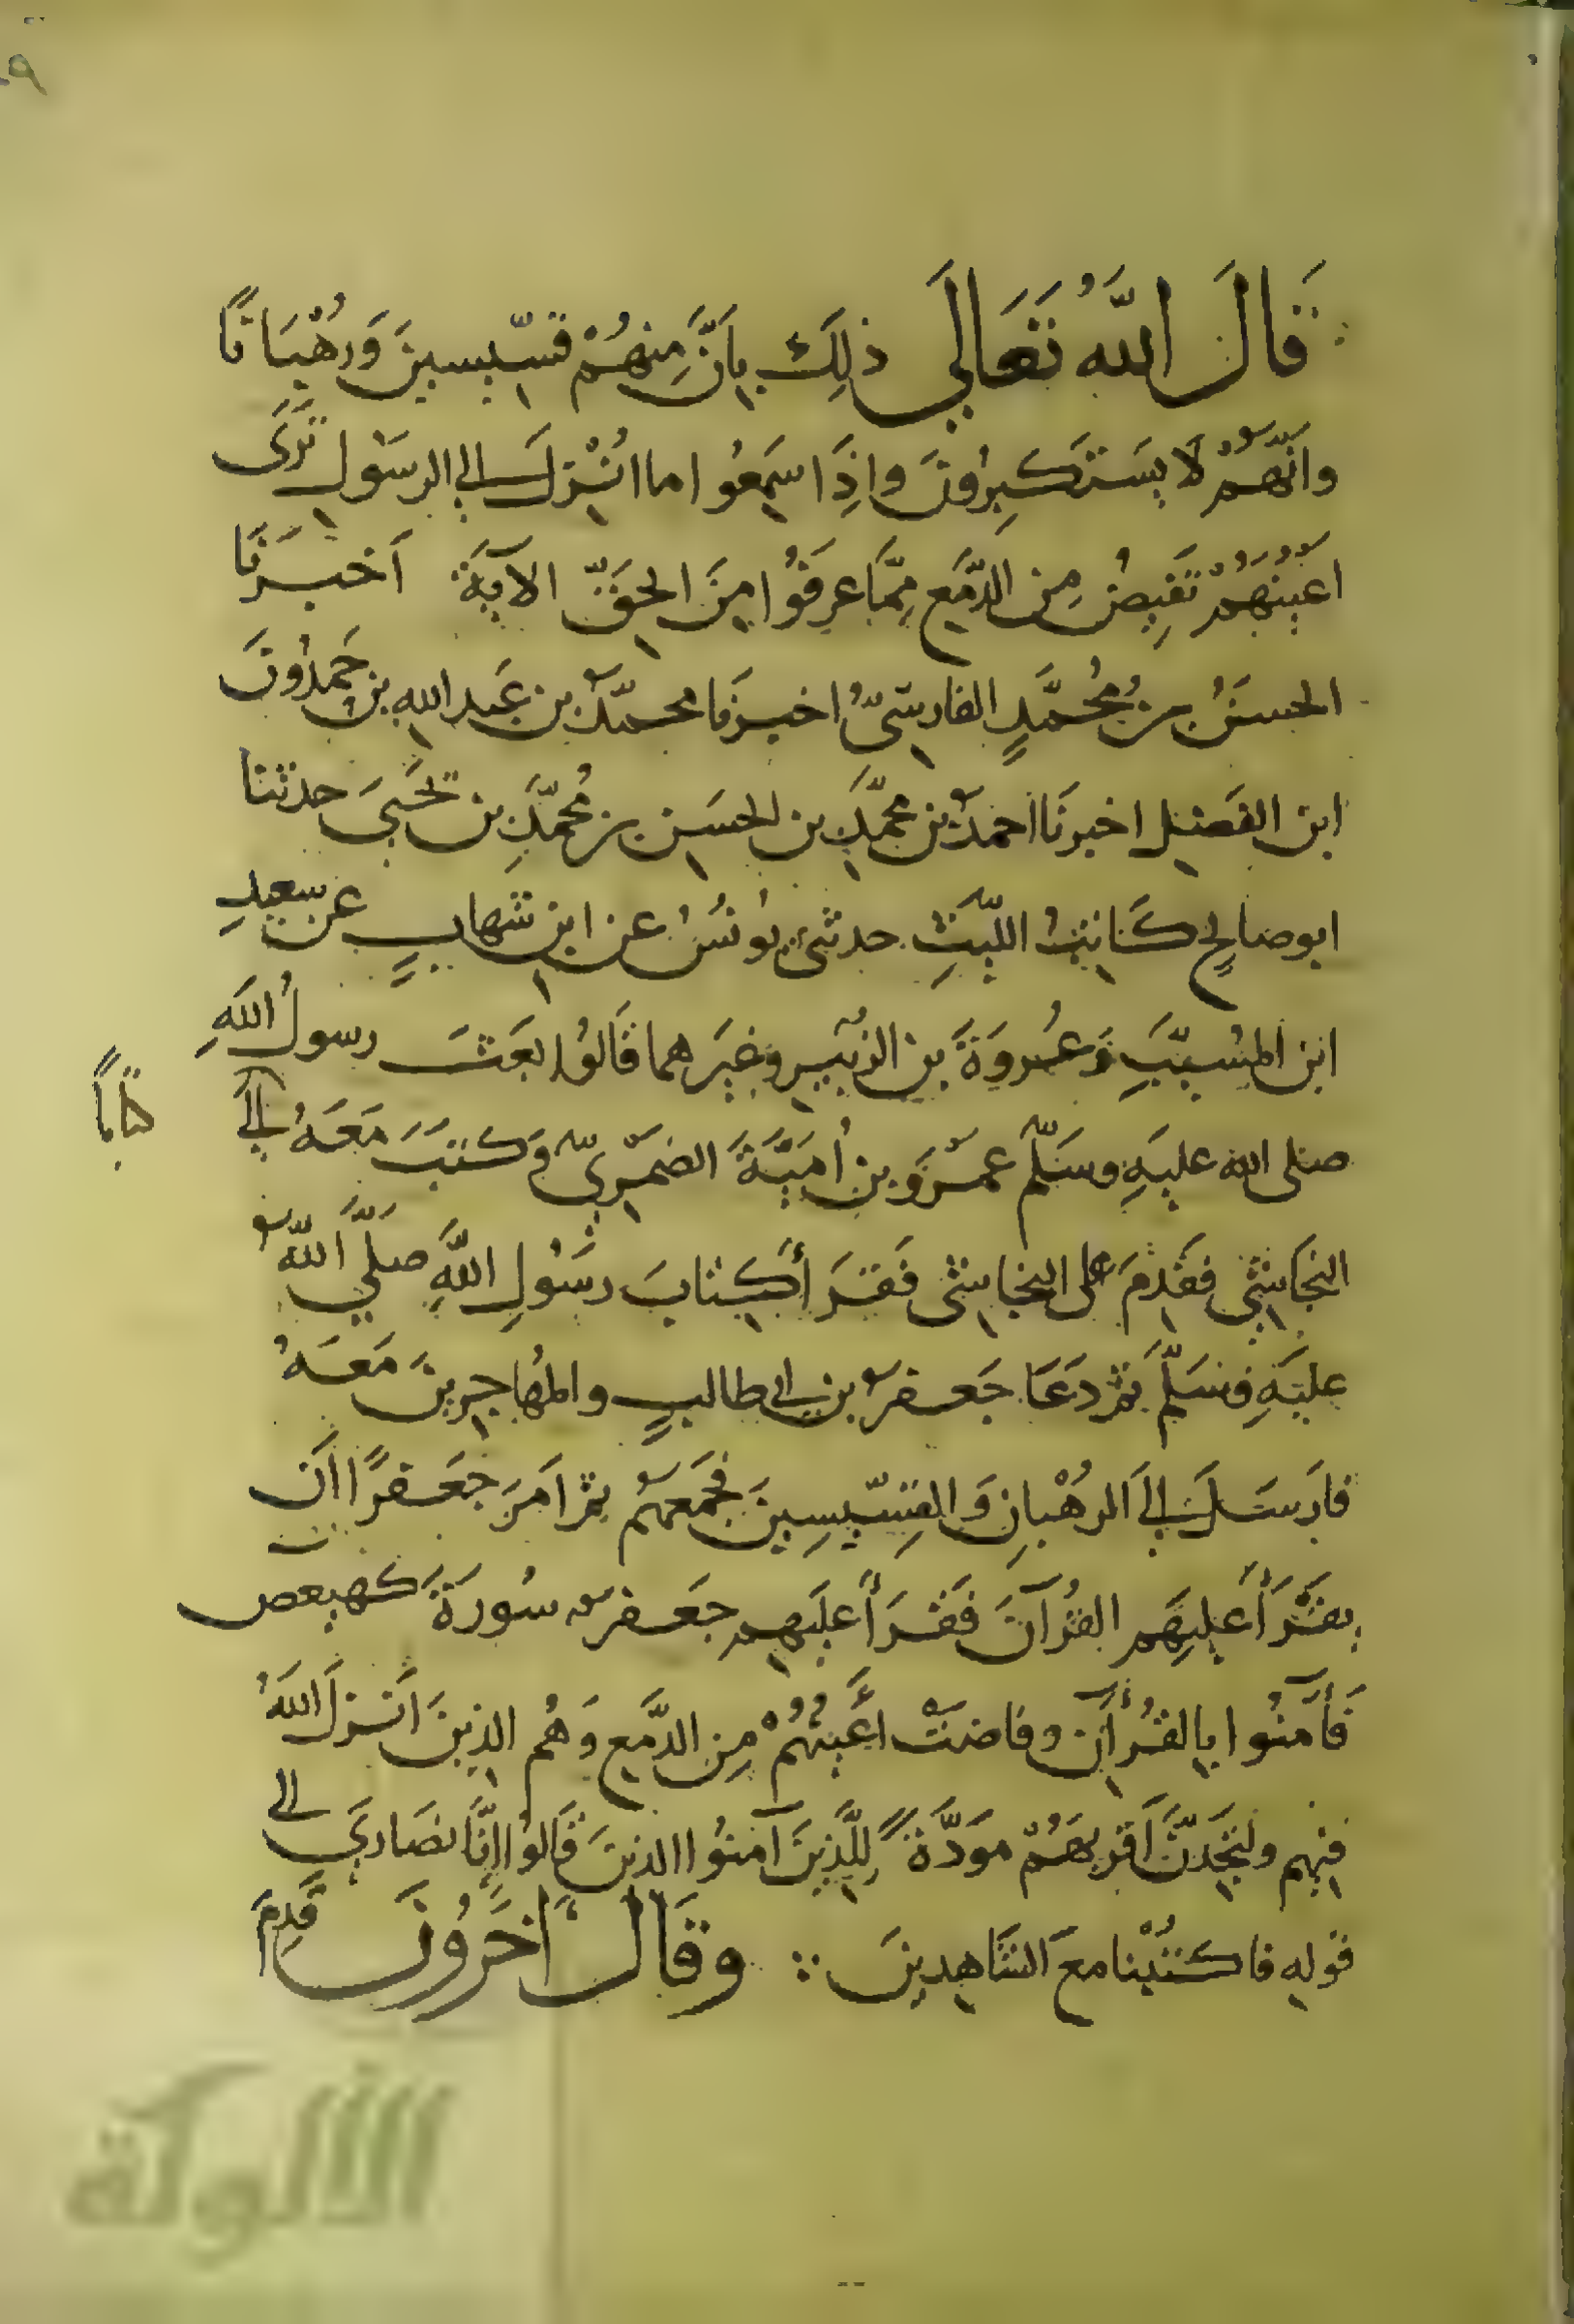 قَالَ اللَّهُ تَعَالَى ذلِكَ بِاَنَّ مِنهُمْ قِسّيسينَ وَرُهْبَانًا
وانّهُمْ لَا يَسْتَكبِرُونَ واِذَا سَمِعُوا ما اُنْزِلَ الي الرسُول تَرَى
اعْيُنَهُمْ تَفِيضُ مِنَ الدَّمعِ مِمَّا عَرفُوا مِنَ الحَقّ الآيَةَ اَخبَرنَا
الحسَنُ بنُ مُحُمَّدٍ الفارسىُّ اخبرَنا محمّد بن عَبد الله بن حَمدُونَ
ابن الفَضل اخبرنَا احمد بن محمَّدِ بن الحسَن بن مُحمَّدِ بن يَحيَى حدثنا
ابو صالحٍ كَاتبُ الليّثِ حدثنى يُونُسُ عن ابن شهابٍ عَن سعيدِ
ابن المسُيّبَ وَعُروَةَ بن الزبَيرِ وغيَرهما قَالوُا بَعَثَ رسولُ اللهِ
صلى الله عليهِ وسَلّم عمرَو بن اُمَيَّةَ الضمّرِىّ وَكتبَ مَعَهُ اِلَى
كتاباً
النجَاشِي فقَدِمَ على النجاشى فَقَرَأَ كِتابَ رسَوُلِ اللَّهِ صَلَّى اللهُ
عليَهِ وسَلّم ثمّ دَعَا جَعفر بن ابى طالبٍ والمُهاجرِينَ مَعَهُ
فارسَلَ اِلَى الرهُبانِ وَالقِسّيِسِينَ فجَمَعهُم ثم اَمَرَ جعَفرًا اَن
يقَرَأَ عليِهَم القُرآنَ فَقَرَأَ عليَهِم جعَفر سُورَةَ كهيعص
فَآمَنُوا بالقُرْآنِ وفاضَتْ اَعْيُنهُمُ مِنَ الدَّمعِ وَهُم الذِينَ اَنزلَ اللهُ
فيهِم ولتجَدِنَّ اَقربهَمُ مَودَّةً لِلَّذِينَ آمنوُا الذينَ قَالوُا اِنَّا نصَارَى الى
قولهِ فاكتُبْنا معَ الشَاهِدِينَ ؞ وقَالَ اخَرُونَ قَدِمَ
الألوكة